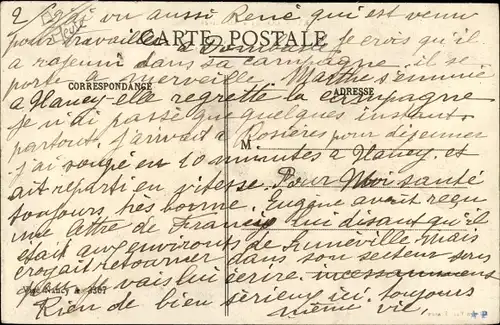 2 J'ai vu aussi René qui est venu
pour travailler a Dombasle je crois qu'il
CARTE POSTALE
a rajeuni dans sa campagne, il se
porte a merveille Marthe s'ennuie
CORRESPONDANCE
ADRESSE
a Nancy elle regrette la campagne
je n'ai passé que quelques instant
partout. j'arrivait a Rosières pour déjeuner
M
j'ai soupé en 10 minutes a Nancy. et
ait reparti en vitesse. Pour Moi santé
toujours très bonne. Eugène avait reçu
une lettre de Francis lui disant qu'il
était aux environs de Lunéville Mais
croyait retourner dans son secteur sous
je vais lui écrire.
Nancy 3307
Rien de bien sérieux ici. toujours
même vie.